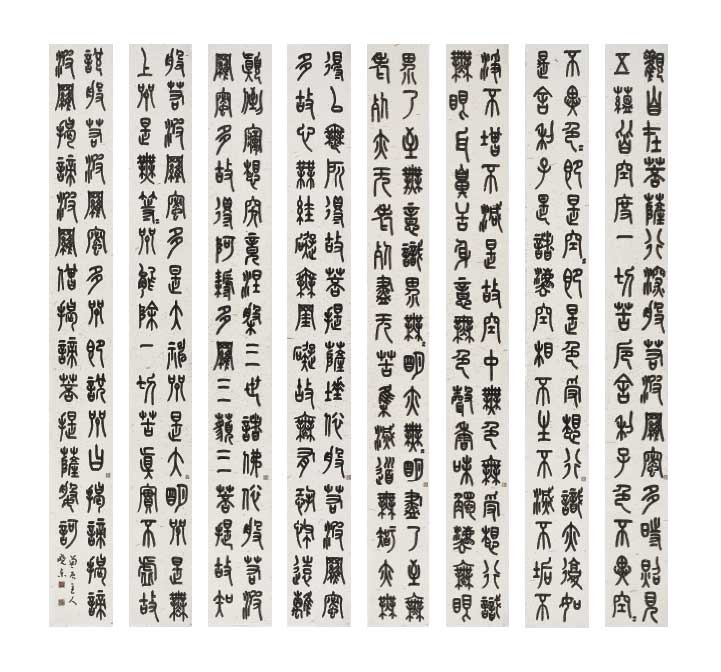 觀自在菩薩行深般若波羅蜜多時照見
五蘊皆空度一切苦厄舍利子色不異空〻
不異色〻即是空〻即是色受想行識亦復如
是舍利子是諸法空相不生不滅不垢不
淨不增不減是故空中無色無受想行識
無眼耳鼻舌身意無色聲香味觸法無眼
界乃至無意識界無〻明亦無〻明盡乃至無
老死亦無老死盡無苦集滅道無智亦無
得以無所得故菩提薩埵依般若波羅蜜
多故心無罣礙無罣礙故無有恐怖遠離
顛倒夢想究竟涅槃三世諸佛依般若波
羅蜜多故得阿耨多羅三藐三菩提故知
般若波羅蜜多是大神咒是大明咒是無
上咒是無等〻咒能除一切苦真實不虛故
說般若波羅蜜多咒即說咒曰揭諦揭諦
波羅揭諦波羅僧揭諦菩提薩婆訶